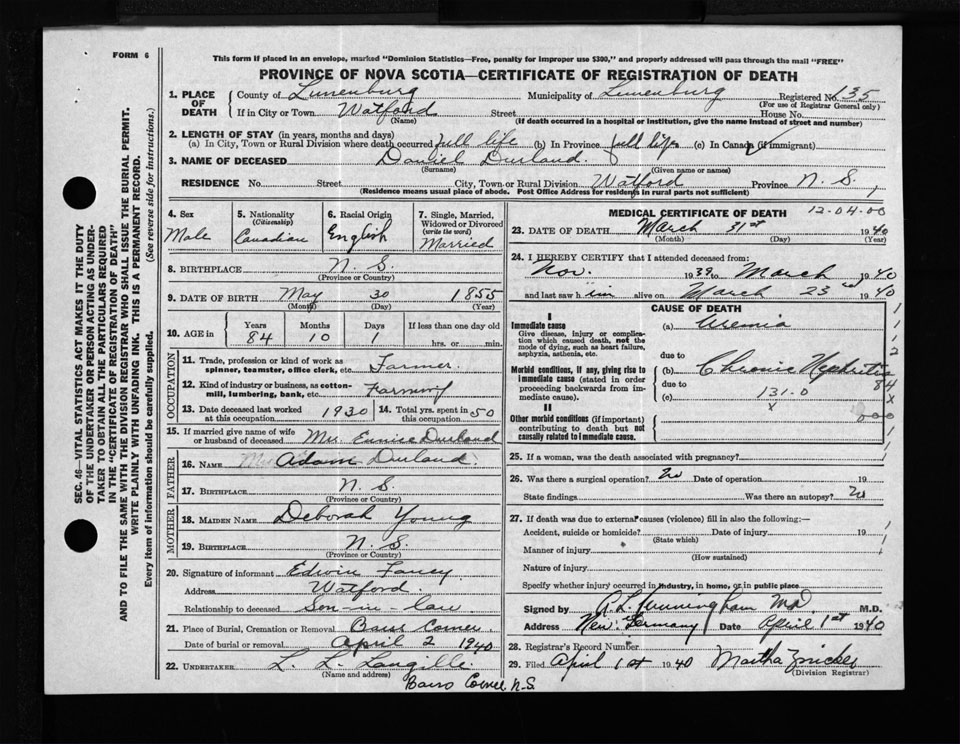 FORM 6
This form if placed in an envelope, marked "Dominion Statistics—Free, penalty for improper use $300," and properly addressed will pass through the mail "FREE"
PROVINCE OF NOVA SCOTIA—CERTIFICATE OF REGISTRATION OF DEATH
1. PLACE OF DEATH
County of Lunenburg Municipality of Lunenburg Registered No. 35
(For use of Registrar General only)
If in City or Town Watford Street House No.
(Name) (If death occurred in a hospital or institution, give the name instead of street and number)
2. LENGTH OF STAY (in years, months and days)
(a) In City, Town or Rural Division where death occurred full life (b) In Province full life (c) In Canada (if immigrant)
3. NAME OF DECEASED Daniel Durland.
(Surname) (Given name or names)
RESIDENCE No. Street City, Town or Rural Division Watford Province N. S.
(Residence means usual place of abode. Post Office Address for residents in rural parts not sufficient)
SEC. 46—VITAL STATISTICS ACT MAKES IT THE DUTY
OF THE UNDERTAKER OR PERSON ACTING AS UNDER-
TAKER TO OBTAIN ALL THE PARTICULARS REQUIRED
IN THE "CERTIFICATE OF REGISTRATION OF DEATH"
AND TO FILE THE SAME WITH THE DIVISION REGISTRAR WHO SHALL ISSUE THE BURIAL PERMIT.
WRITE PLAINLY WITH UNFADING INK. THIS IS A PERMANENT RECORD.
Every item of information should be carefully supplied. (See reverse side for instructions.)
4. Sex Male
5. Nationality (Citizenship) Canadian
6. Racial Origin English
7. Single, Married, Widowed or Divorced (write the word) Married
8. BIRTHPLACE N. S.
(Province or Country)
9. DATE OF BIRTH May 30 1855
(Month) (Day) (Year)
10. AGE in Years 84 Months 10 Days 1 If less than one day old hrs. or min.
OCCUPATION
11. Trade, profession or kind of work as spinner, teamster, office clerk, etc. Farmer.
12. Kind of industry or business, as cotton-mill, lumbering, bank, etc. Farming
13. Date deceased last worked at this occupation 1930
14. Total yrs. spent in this occupation 50
15. If married give name of wife or husband of deceased Mrs. Eunice Durland
FATHER
16. NAME Adam Durland.
17. BIRTHPLACE N. S.
(Province or Country)
MOTHER
18. MAIDEN NAME Deborah Young
19. BIRTHPLACE N. S.
(Province or Country)
20. Signature of informant Edwin Fancy
Address Watford.
Relationship to deceased Son-in-law
21. Place of Burial, Cremation or Removal Barss Corner.
Date of burial or removal April 2 1940
22. UNDERTAKER L. L. Langille.
(Name and address)
Barss Corner N.S.
MEDICAL CERTIFICATE OF DEATH 12-04-00
23. DATE OF DEATH March 31st 1940
(Month) (Day) (Year)
24. I HEREBY CERTIFY that I attended deceased from:
Nov. 1939 to March 1940
and last saw him alive on March 23rd 1940
CAUSE OF DEATH
I
Immediate cause
Give disease, injury or complication which caused death, not the mode of dying, such as heart failure, asphyxia, asthenia, etc.
(a) Uremia
due to
Morbid conditions, if any, giving rise to immediate cause (stated in order proceeding backwards from immediate cause).
(b) Chronic Nephritis
due to
(c) 131.0
x
II
Other morbid conditions (if important) contributing to death but not causally related to immediate cause.
1
1
2
84
X
000
1
1
25. If a woman, was the death associated with pregnancy?
26. Was there a surgical operation? No Date of operation 19
State findings Was there an autopsy? No
27. If death was due to external causes (violence) fill in also the following:—
Accident, suicide or homicide? Date of injury 19
(State which)
Manner of injury
(How sustained)
Nature of injury
Specify whether injury occurred in industry, in home, or in public place
Signed by Cunningham MD. M.D.
Address New Germany Date April 1st 1940
28. Registrar's Record Number
29. Filed April 1st 1940 Martha Zwicker
(Division Registrar)